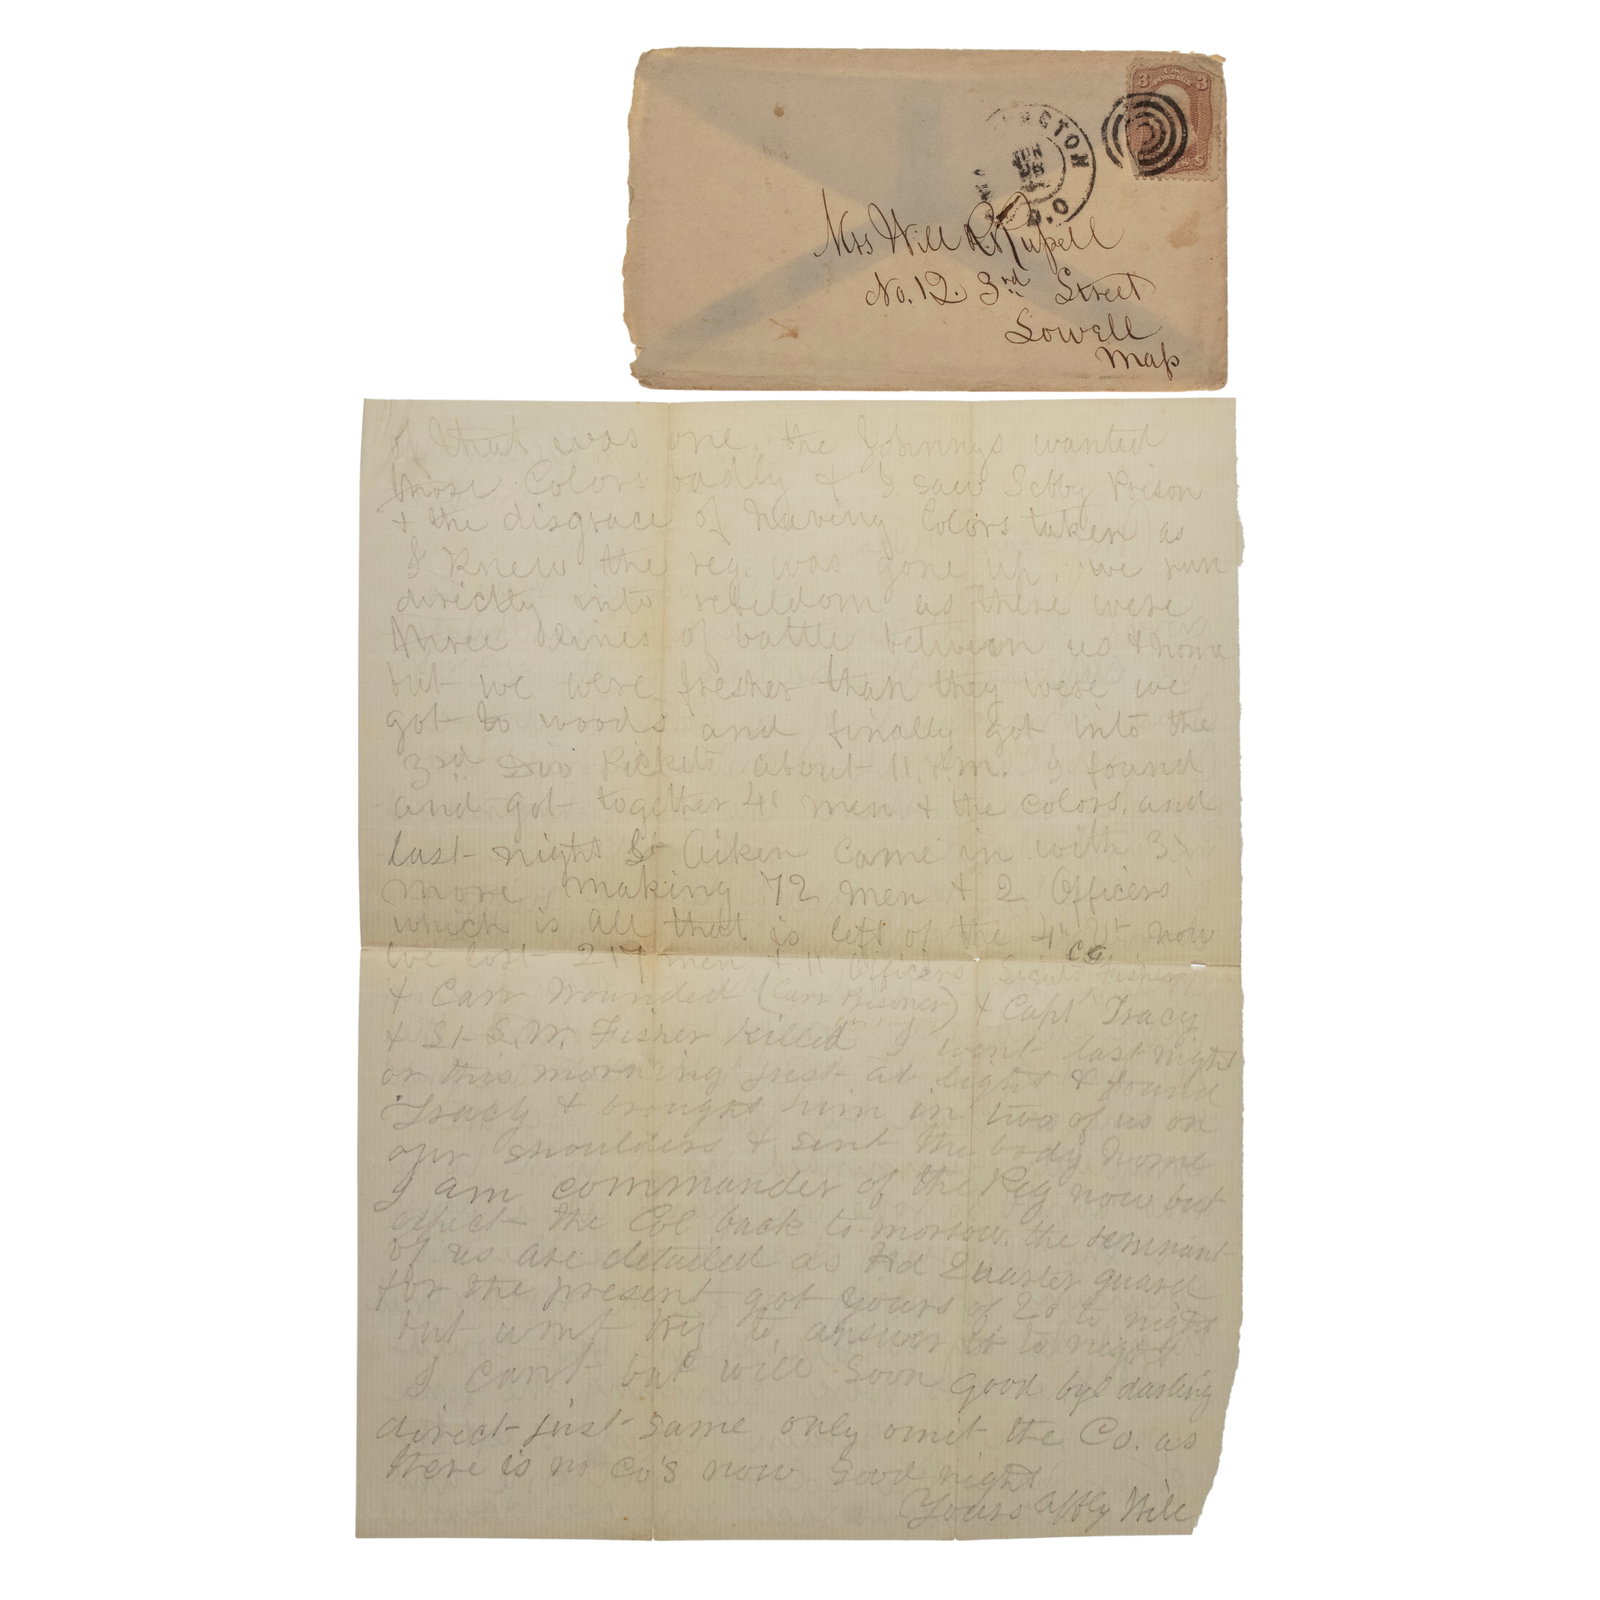 3 3
INGTON
JUN
D.C
Mrs Will C Rufsell
No. 12. 3rd Street
Lowell
Mafs
of that was one, the Johnnys wanted
those Colors badly & I saw Libby Prison
& the disgrace of having Colors taken as
I knew the reg. was gone up, we run
directly into rebeldom as there were
three lines of battle between us & home
but we were fresher than they were we
got to woods and finally got into the
3rd Div Pickets about 11 P.m. I found
and got together 41 men & the colors, and
last night Lt Aiken came in with 31
more, making 72 men & 2 Officers
which is all that is left of the 4" Vt now
we lost 217 men & 11 Officers
Co
Fisher
& Carr Wounded (Carr Prisoner) & Capt Tracy
& Lt S.W. Fisher Killed I went last night
or this morning just at light & found
Tracy & brought him in two of us on
our shoulders & sent the body home
I am commander of the Reg now but
expect the Col back to-morrow. the remnant
of us are detailed as Hd Quarter guard
for the present got yours of 20 to night
but wont try to answer it to night
I cant but will soon good bye darling
direct just same only omit the Co. as
there is no Co's now good night
Yours affly Will